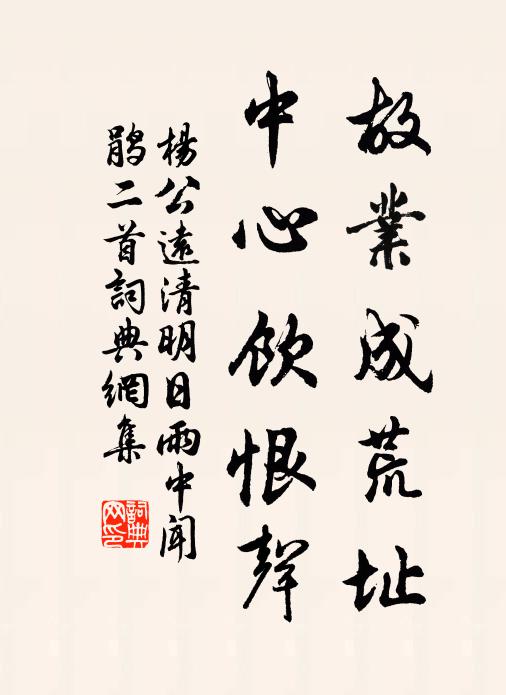 故業成荒址
中心飲恨聲
楊公遠清明日雨中聞
鵑二首詞典網集
詞典
网印